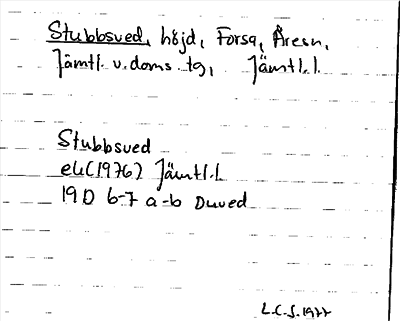 Stubbsved, höjd, Forsa, Åresn,
Jämtl. v. doms. tg, Jämtl.l.
Stubbsved
ek(1976) Jämtl.l
19D 6-7 a-b Duved
L.C.S. 1977